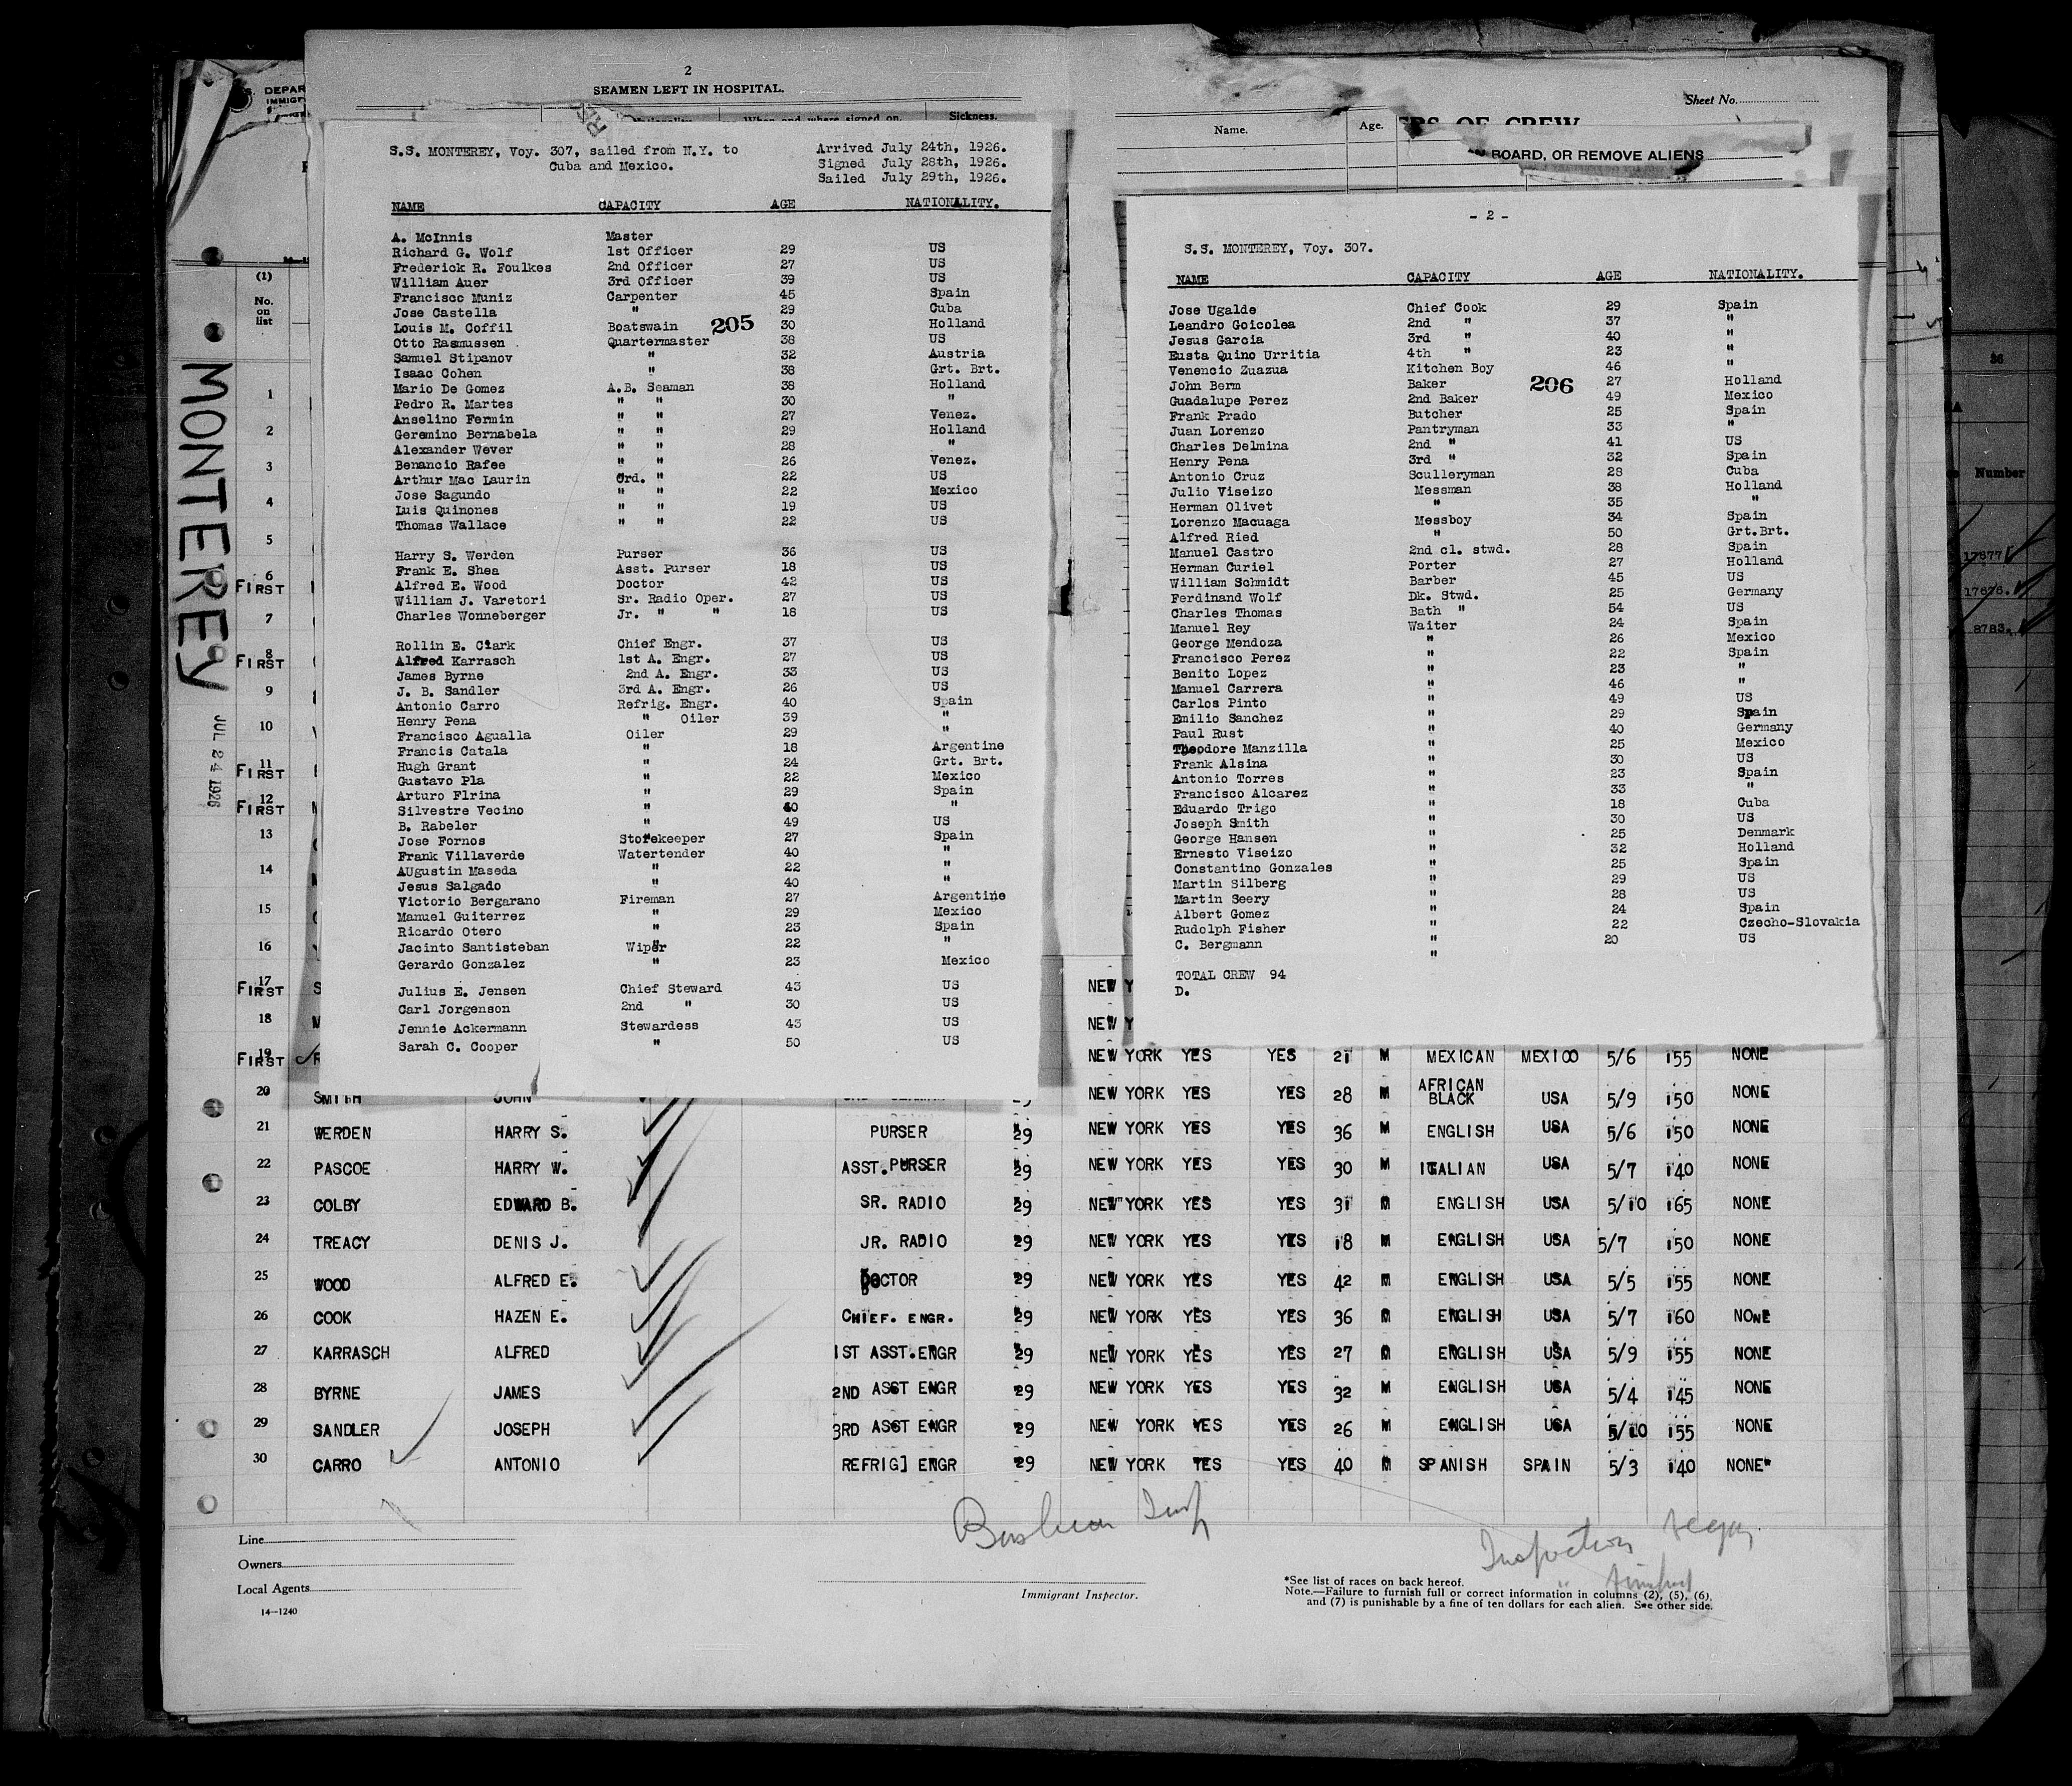 DEPAR
IMMIGR
2
SEAMEN LEFT IN HOSPITAL.
Nationality. When and where signed on. Sickness.
S.S. MONTEREY, Voy. 307, sailed from N.Y. to
Cuba and Mexico.
Arrived July 24th, 1926.
Signed July 28th, 1926.
Sailed July 29th, 1926.
NAME CAPACITY AGE NATIONALITY.
A. McInnis Master
Richard G. Wolf 1st Officer 29 US
Frederick R. Foulkes 2nd Officer 27 US
William Auer 3rd Officer 39 US
Francisco Muniz Carpenter 45 Spain
Jose Castella " 29 Cuba
Louis M. Coffil Boatswain 205 30 Holland
Otto Rasmussen Quartermaster 38 US
Samuel Stipanov " 32 Austria
Isaac Cohen " 38 Grt. Brt.
Mario De Gomez A.B. Seaman 38 Holland
Pedro R. Martes " " 30 "
Anselino Fermin " " 27 Venez.
Geremino Bernabela " " 29 Holland
Alexander Wever " " 28 "
Benancio Rafee " " 26 Venez.
Arthur Mac Laurin Ord. " 22 US
Jose Sagundo " " 22 Mexico
Luis Quinones " " 19 US
Thomas Wallace " " 22 US
Harry S. Werden Purser 36 US
Frank E. Shea Asst. Purser 18 US
Alfred E. Wood Doctor 42 US
William J. Varetori Sr. Radio Oper. 27 US
Charles Wonneberger Jr. " " 18 US
Rollin E. Clark Chief Engr. 37 US
Alfred Karrasch 1st A. Engr. 27 US
James Byrne 2nd A. Engr. 33 US
J. B. Sandler 3rd A. Engr. 26 US
Antonio Carro Refrig. Engr. 40 Spain
Henry Pena " Oiler 39 "
Francisco Agualla Oiler 29 "
Francis Catala " 18 Argentine
Hugh Grant " 24 Grt. Brt.
Gustavo Pla " 22 Mexico
Arturo Flrina " 29 Spain
Silvestre Vecino " 40 "
B. Rabeler " 49 US
Jose Fornos Storekeeper 27 Spain
Frank Villaverde Watertender 40 "
AUgustin Maseda " 22 "
Jesus Salgado " 40 "
Victorio Bergarano Fireman 27 Argentine
Manuel Guiterrez " 29 Mexico
Ricardo Otero " 23 Spain
Jacinto Santisteban Wiper 22 "
Gerardo Gonzalez " 23 Mexico
Julius E. Jensen Chief Steward 43 US
Carl Jorgenson 2nd " 30 US
Jennie Ackermann Stewardess 43 US
Sarah C. Cooper " 50 US
Sheet No.
Name. Age.
ERS OF CREW
BOARD, OR REMOVE ALIENS
- 2 -
S.S. MONTEREY, Voy. 307.
NAME CAPACITY AGE NATIONALITY.
Jose Ugalde Chief Cook 29 Spain
Leandro Goicolea 2nd " 37 "
Jesus Garcia 3rd " 40 "
Eusta Quino Urritia 4th " 23 "
Venencio Zuazua Kitchen Boy 46 "
John Berm Baker 206 27 Holland
Guadalupe Perez 2nd Baker 49 Mexico
Frank Prado Butcher 25 Spain
Juan Lorenzo Pantryman 33 "
Charles Delmina 2nd " 41 US
Henry Pena 3rd " 32 Spain
Antonio Cruz Sculleryman 28 Cuba
Julio Viseizo Messman 38 Holland
Herman Olivet " 35 "
Lorenzo Macuaga Messboy 34 Spain
Alfred Ried " 50 Grt.Brt.
Manuel Castro 2nd cl. stwd. 28 Spain
Herman Curiel Porter 27 Holland
William Schmidt Barber 45 US
Ferdinand Wolf Dk. Stwd. 25 Germany
Charles Thomas Bath " 54 US
Manuel Rey Waiter 24 Spain
George Mendoza " 26 Mexico
Francisco Perez " 22 Spain
Benito Lopez " 23 "
Manuel Carrera " 46 "
Carlos Pinto " 49 US
Emilio Sanchez " 29 Spain
Paul Rust " 40 Germany
Theodore Manzilla " 25 Mexico
Frank Alsina " 30 US
Antonio Torres " 23 Spain
Francisco Alcarez " 33 "
Eduardo Trigo " 18 Cuba
Joseph Smith " 30 US
George Hansen " 25 Denmark
Ernesto Viseizo " 32 Holland
Constantino Gonzales " 25 Spain
Martin Silberg " 29 US
Martin Seery " 28 US
Albert Gomez " 24 Spain
Rudolph Fisher " 22 Czecho-Slovakia
C. Bergmann " 20 US
TOTAL CREW 94
D.
MONTEREY
JUL 24 1926
(1)
No.
on
list
1
2
3
4
5
6 FIRST
7
8 FIRST
9
10
11 FIRST
12 FIRST
13
14
15
16
17 FIRST NEW Y
18 NEW Y
19 FIRST NEW YORK YES YES 21 M MEXICAN MEXICO 5/6 155 NONE
20 SMITH JOHN NEW YORK YES YES 28 M AFRICAN BLACK USA 5/9 150 NONE
21 WERDEN HARRY S. PURSER 29 NEW YORK YES YES 36 M ENGLISH USA 5/6 150 NONE
22 PASCOE HARRY W. ASST. PURSER 29 NEW YORK YES YES 30 M ITALIAN USA 5/7 140 NONE
23 COLBY EDWARD B. SR. RADIO 29 NEW YORK YES YES 31 M ENGLISH USA 5/10 165 NONE
24 TREACY DENIS J. JR. RADIO 29 NEW YORK YES YES 18 M ENGLISH USA 5/7 150 NONE
25 WOOD ALFRED E. DOCTOR 29 NEW YORK YES YES 42 M ENGLISH USA 5/5 155 NONE
26 COOK HAZEN E. CHIEF. ENGR. 29 NEW YORK YES YES 36 M ENGLISH USA 5/7 160 NONE
27 KARRASCH ALFRED 1ST ASST. ENGR 29 NEW YORK YES YES 27 M ENGLISH USA 5/9 155 NONE
28 BYRNE JAMES 2ND ASST ENGR 29 NEW YORK YES YES 32 M ENGLISH USA 5/4 145 NONE
29 SANDLER JOSEPH 3RD ASST ENGR 29 NEW YORK YES YES 26 M ENGLISH USA 5/10 155 NONE
30 CARRO ANTONIO REFRIG] ENGR 29 NEW YORK YES YES 40 M SPANISH SPAIN 5/3 140 NONE"
Line
Owners
Local Agents
14—1240
Immigrant Inspector.
Inspection
*See list of races on back hereof.
Note.—Failure to furnish full or correct information in columns (2), (5), (6),
and (7) is punishable by a fine of ten dollars for each alien. See other side.
36
Number
17877
17878.
8783.